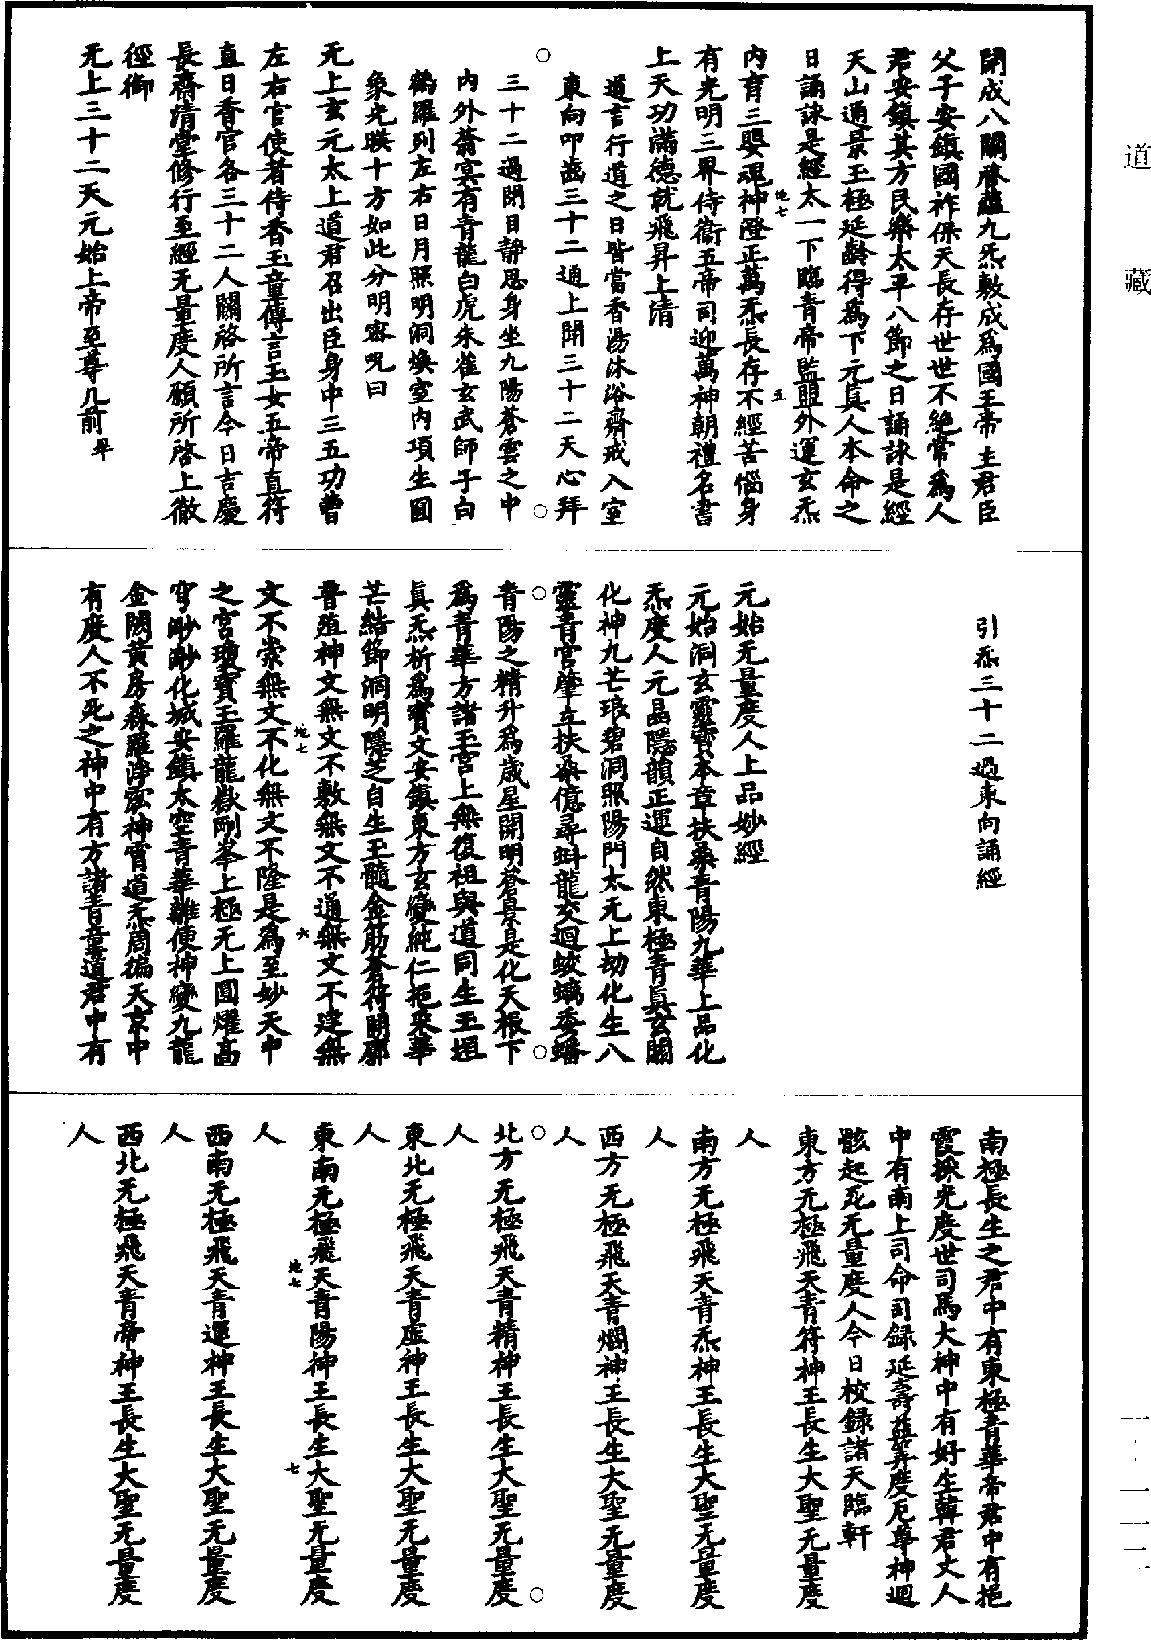 道藏
開成八關胥蘊九炁敷成爲國王帝主君臣
父子安鎮國祚保天長存世世不絶常爲人
君安鎮其方民樂太平八節之日誦詠是經
天山通景玉極延齡得爲下元真人本命之
日誦詠是經太一下臨青帝監盟外運玄炁
内育三嬰魂神澄正萬炁長存不經苦惱身
地七 五
有光明三界侍衞五帝司迎萬神朝禮名書
上天功滿德就飛昇上清
道言行道之日皆當香湯沐浴齋戒入室
東向叩齒三十二通上聞三十二天心拜
三十二過閉目靜思身坐九陽蒼雲之中
内外蓊冥有青龍白虎朱雀玄武師子白
鶴羅列左右日月照明洞煥室内項生圓
象光暎十方如此分明密咒曰
无上玄元太上道君召出臣身中三五功曹
左右官使者侍香玉童傳言玉女五帝直符
直日香官各三十二人關啓所言今日吉慶
長齋清堂修行至經无量度人願所啓上徹
徑御
无上三十二天元始上帝至尊几前畢
引炁三十二過東向誦經
元始无量度人上品妙經
元始洞玄靈寶本章扶桑青陽九華上品化
炁度人元品隱韻正運自然東極青真玄關
化神九芒琅碧洞照陽門太无上劫化生八
靈青宮肇立扶桑億尋蚪龍交迴蛟螭委蟠
青陽之精升爲歲星開明蒼景是化天根下
爲青華方諸玉宮上無復祖與道同生玉垣
真炁析爲寶文安鎮東方玄變純仁抱采華
芒結節洞明隱芝自生玉髓金筋蒼符開廓
普殖神文無文不敷無文不通無文不建無
地七 六
文不崇無文不化無文不隆是爲至妙天中
之宮瓊寶玉羅龍嶽剛峯上極无上圓燿高
穹眇眇化城安鎮太空青華離便神變九龍
金闕黄房森羅淨宏神霄道炁周徧天京中
有度人不死之神中有方諸青童道君中有
南極長生之君中有東極青華帝君中有挹
霞採光度世司馬大神中有好生韓君丈人
中有南上司命司録延壽益筭度厄尊神迴
骸起死无量度人今日校録諸天臨軒
東方无極飛天青符神王長生大聖无量度
人
南方无極飛天青炁神王長生大聖无量度
人
西方无極飛天青爛神王長生大聖无量度
人
北方无極飛天青精神王長生大聖无量度
人
東北无極飛天青虛神王長生大聖无量度
人
東南无極飛天青陽神王長生大聖无量度
地七 七
人
西南无極飛天青運神王長生大聖无量度
人
西北无極飛天青帝神王長生大聖无量度
人